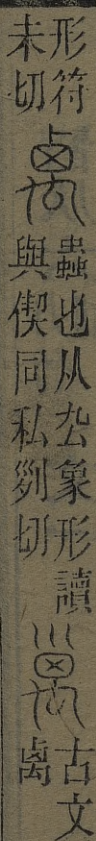 形符
未切
禼
蟲也从厹象形讀
與偰同私列切
古文
禼